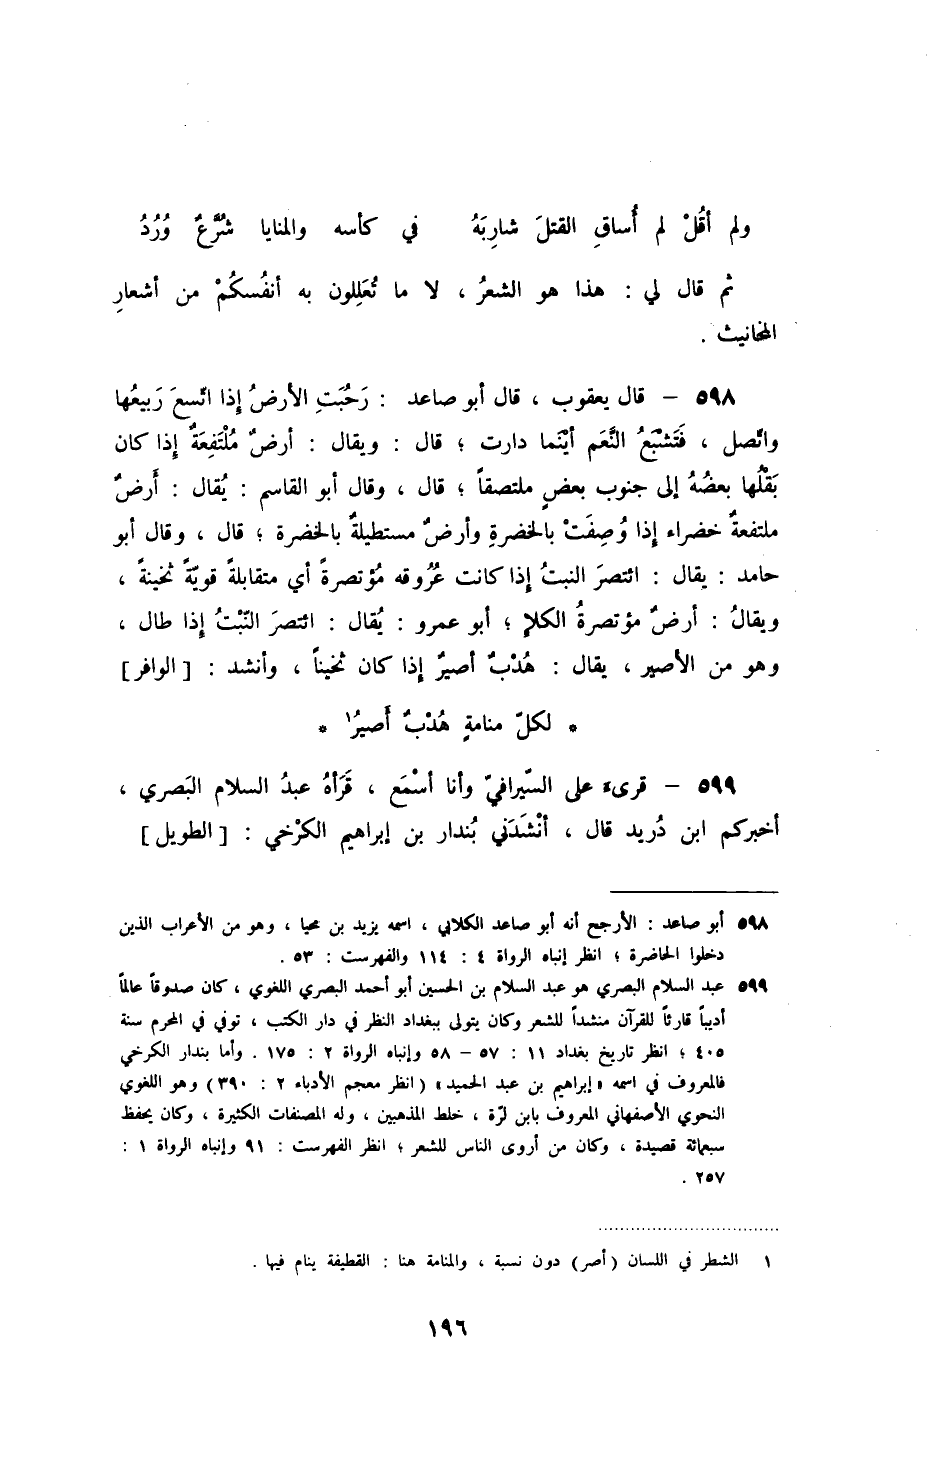 ولم أقُلْ لم أُساقِ القتلَ شارِبَهُ في كأسه والمنايا شُرَّعٌ وُرُدُ
ثم قال لي : هذا هو الشعرُ ، لا ما تُعَلِلون به أنفُسكُمْ من أشعارِ
المخانيث .
٥٩٨ – قال يعقوب ، قال أبو صاعد : رَحُبَتِ الأرضُ إذا اتّسعَ رَبيعُها
واتّصل ، فَتَشْبَعُ النَّعَم أيْنَما دارت ؛ قال : ويقال : أرضٌ مُلْتَفعَةٌ إذا كان
بَقْلُها بعضُهُ إلى جنوب بعضٍ ملتصقاً ؛ قال ، وقال أبو القاسم : يُقال : أَرضٌ
ملتفعةٌ خضراء إذا وُصِفَتْ بالخضرةِ وأرضٌ مستطيلةٌ بالخضرة ؛ قال ، وقال أبو
حامد : يقال : ائتصرَ النبتُ إذا كانت عُرُوقه مُؤتصرةً أي متقابلةً قويّةً ثخينةً ،
ويقالُ : أرضٌ مؤتصرةُ الكلإ ؛ أبو عمرو : يُقال : ائتصرَ النّبْتُ إذا طال ،
وهو من الأصير ، يقال : هُدْبٌ أصيرٌ إذا كان ثخيناً ، وأنشد : [الوافر]
* لكلّ منامةٍ هُدْبٌ أَصيرُ١ *
٥٩٩ – قرىء على السّيرافيّ وأنا أسْمَع ، قَرَأهُ عبدُ السلام البَصري ،
أخبركم ابن دُريد قال ، أنْشَدَني بُندار بن إبراهيم الكرْخي : [الطويل]
٥٩٨ أبو صاعد : الأرجح أنه أبو صاعد الكلابي ، اسمه يزيد بن محيا ، وهو من الأعراب الذين
دخلوا الحاضرة ؛ انظر إنباه الرواة ٤ : ١١٤ والفهرست : ٥٣ .
٥٩٩ عبد السلام البصري هو عبد السلام بن الحسين أبو أحمد البصري اللغوي ، كان صدوقاً عالماً
أديباً قارئاً للقرآن منشداً للشعر وكان يتولى ببغداد النظر في دار الكتب ، توفي في المحرم سنة
٤٠٥ ؛ انظر تاريخ بغداد ١١ : ٥٧ – ٥٨ وإنباه الرواة ٢ : ١٧٥ . وأما بندار الكرخي
فالمعروف في اسمه «إبراهيم بن عبد الحميد» (انظر معجم الأدباء ٢ : ٣٩٠) وهو اللغوي
النحوي الأصفهاني المعروف بابن لرّة ، خلط المذهبين ، وله المصنفات الكثيرة ، وكان يحفظ
سبعمائة قصيدة ، وكان من أروى الناس للشعر ؛ انظر الفهرست : ٩١ وإنباه الرواة ١ :
٢٥٧ .
١ الشطر في اللسان (أصر) دون نسبة ، والمنامة هنا : القطيفة ينام فيها .
١٩٦